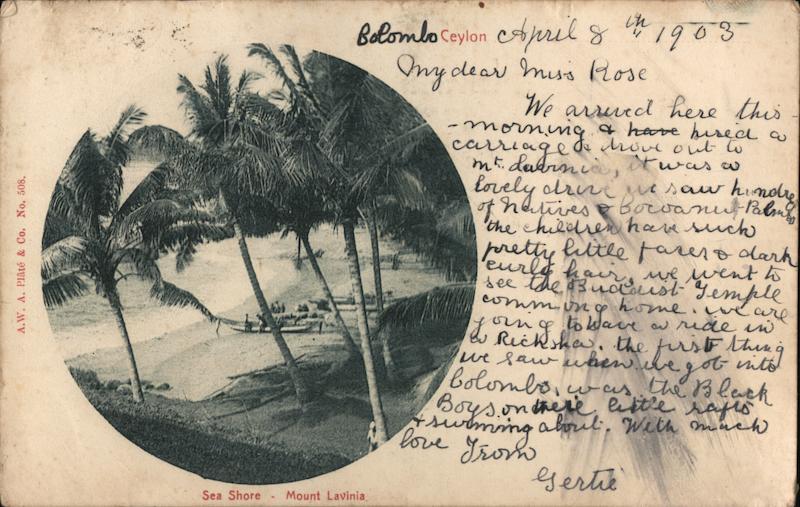 Colombo Ceylon April 8th 1903
My dear Miss Rose
We arrived here this
morning & have hired a
carriage & drove out to
Mt. Lavinia, it was a
lovely drive we saw hundreds
of Natives & Cocoanut Palms
the children have such
pretty little faces & dark
curly hair, we went to
see the Buddist Temple
comming home. we are
going to have a ride in
a Ricksha. the first thing
we saw when we got into
Colombo, was the Black
Boys on there little rafts
& swimming about. With much
love From
Gertie
A.W. A. Plâté & Co. No. 508.
Sea Shore - Mount Lavinia